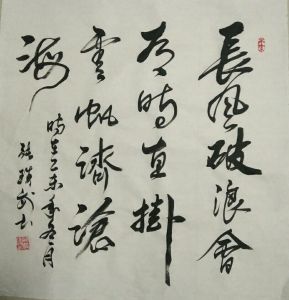 長風破浪會
有時直掛
雲帆濟滄
海
時在乙未年冬月